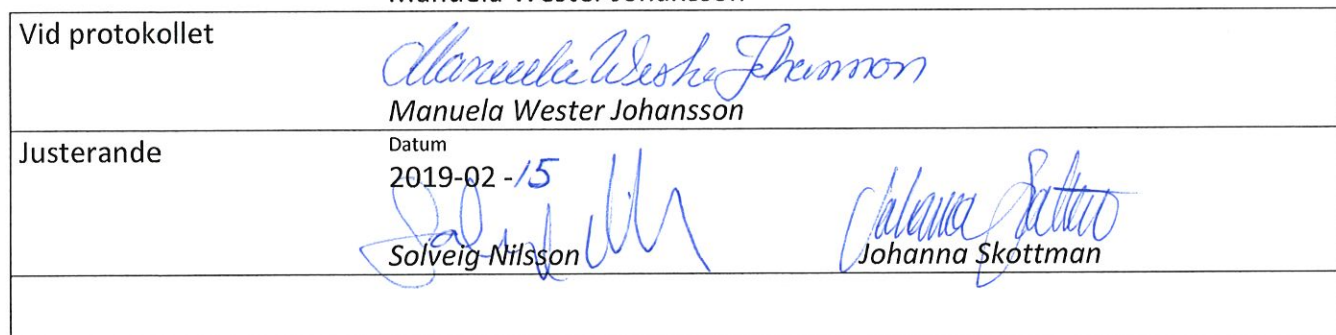 Manuela Wester Johansson
Vid protokollet
Manuela Wester Johansson
Manuela Wester Johansson
Justerande
Datum
2019-02 -15
Solveig Nilsson
Johanna Skottman